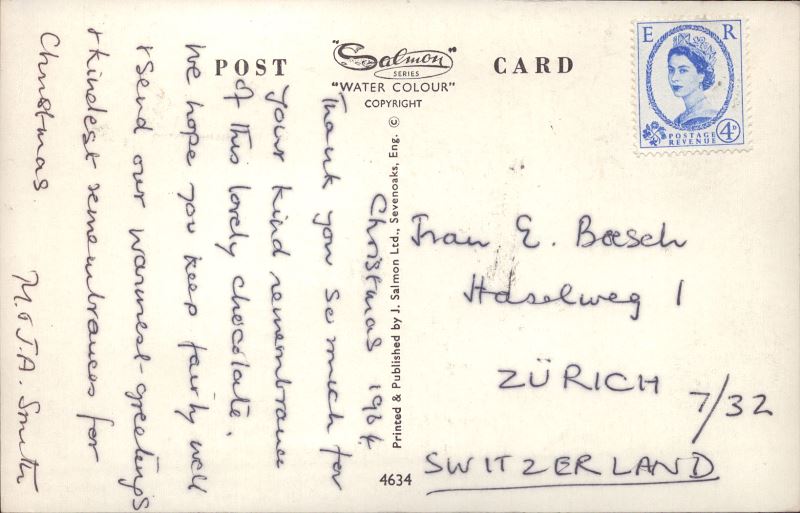 POST "Salmon" CARD
SERIES
"WATER COLOUR"
COPYRIGHT
E R
POSTAGE
REVENUE
4D
Christmas 1964
Thank you so much for
your kind remembrance
of this lovely chocolate.
We hope you keep fairly well
& send our warmest greetings
& kindest remembrances for
Christmas
M. & J.A. Smith
Printed & Published by J. Salmon Ltd., Sevenoaks, Eng. ©
4634
Frau E. Boesch
Haselweg 1
ZÜRICH 7/32
SWITZERLAND